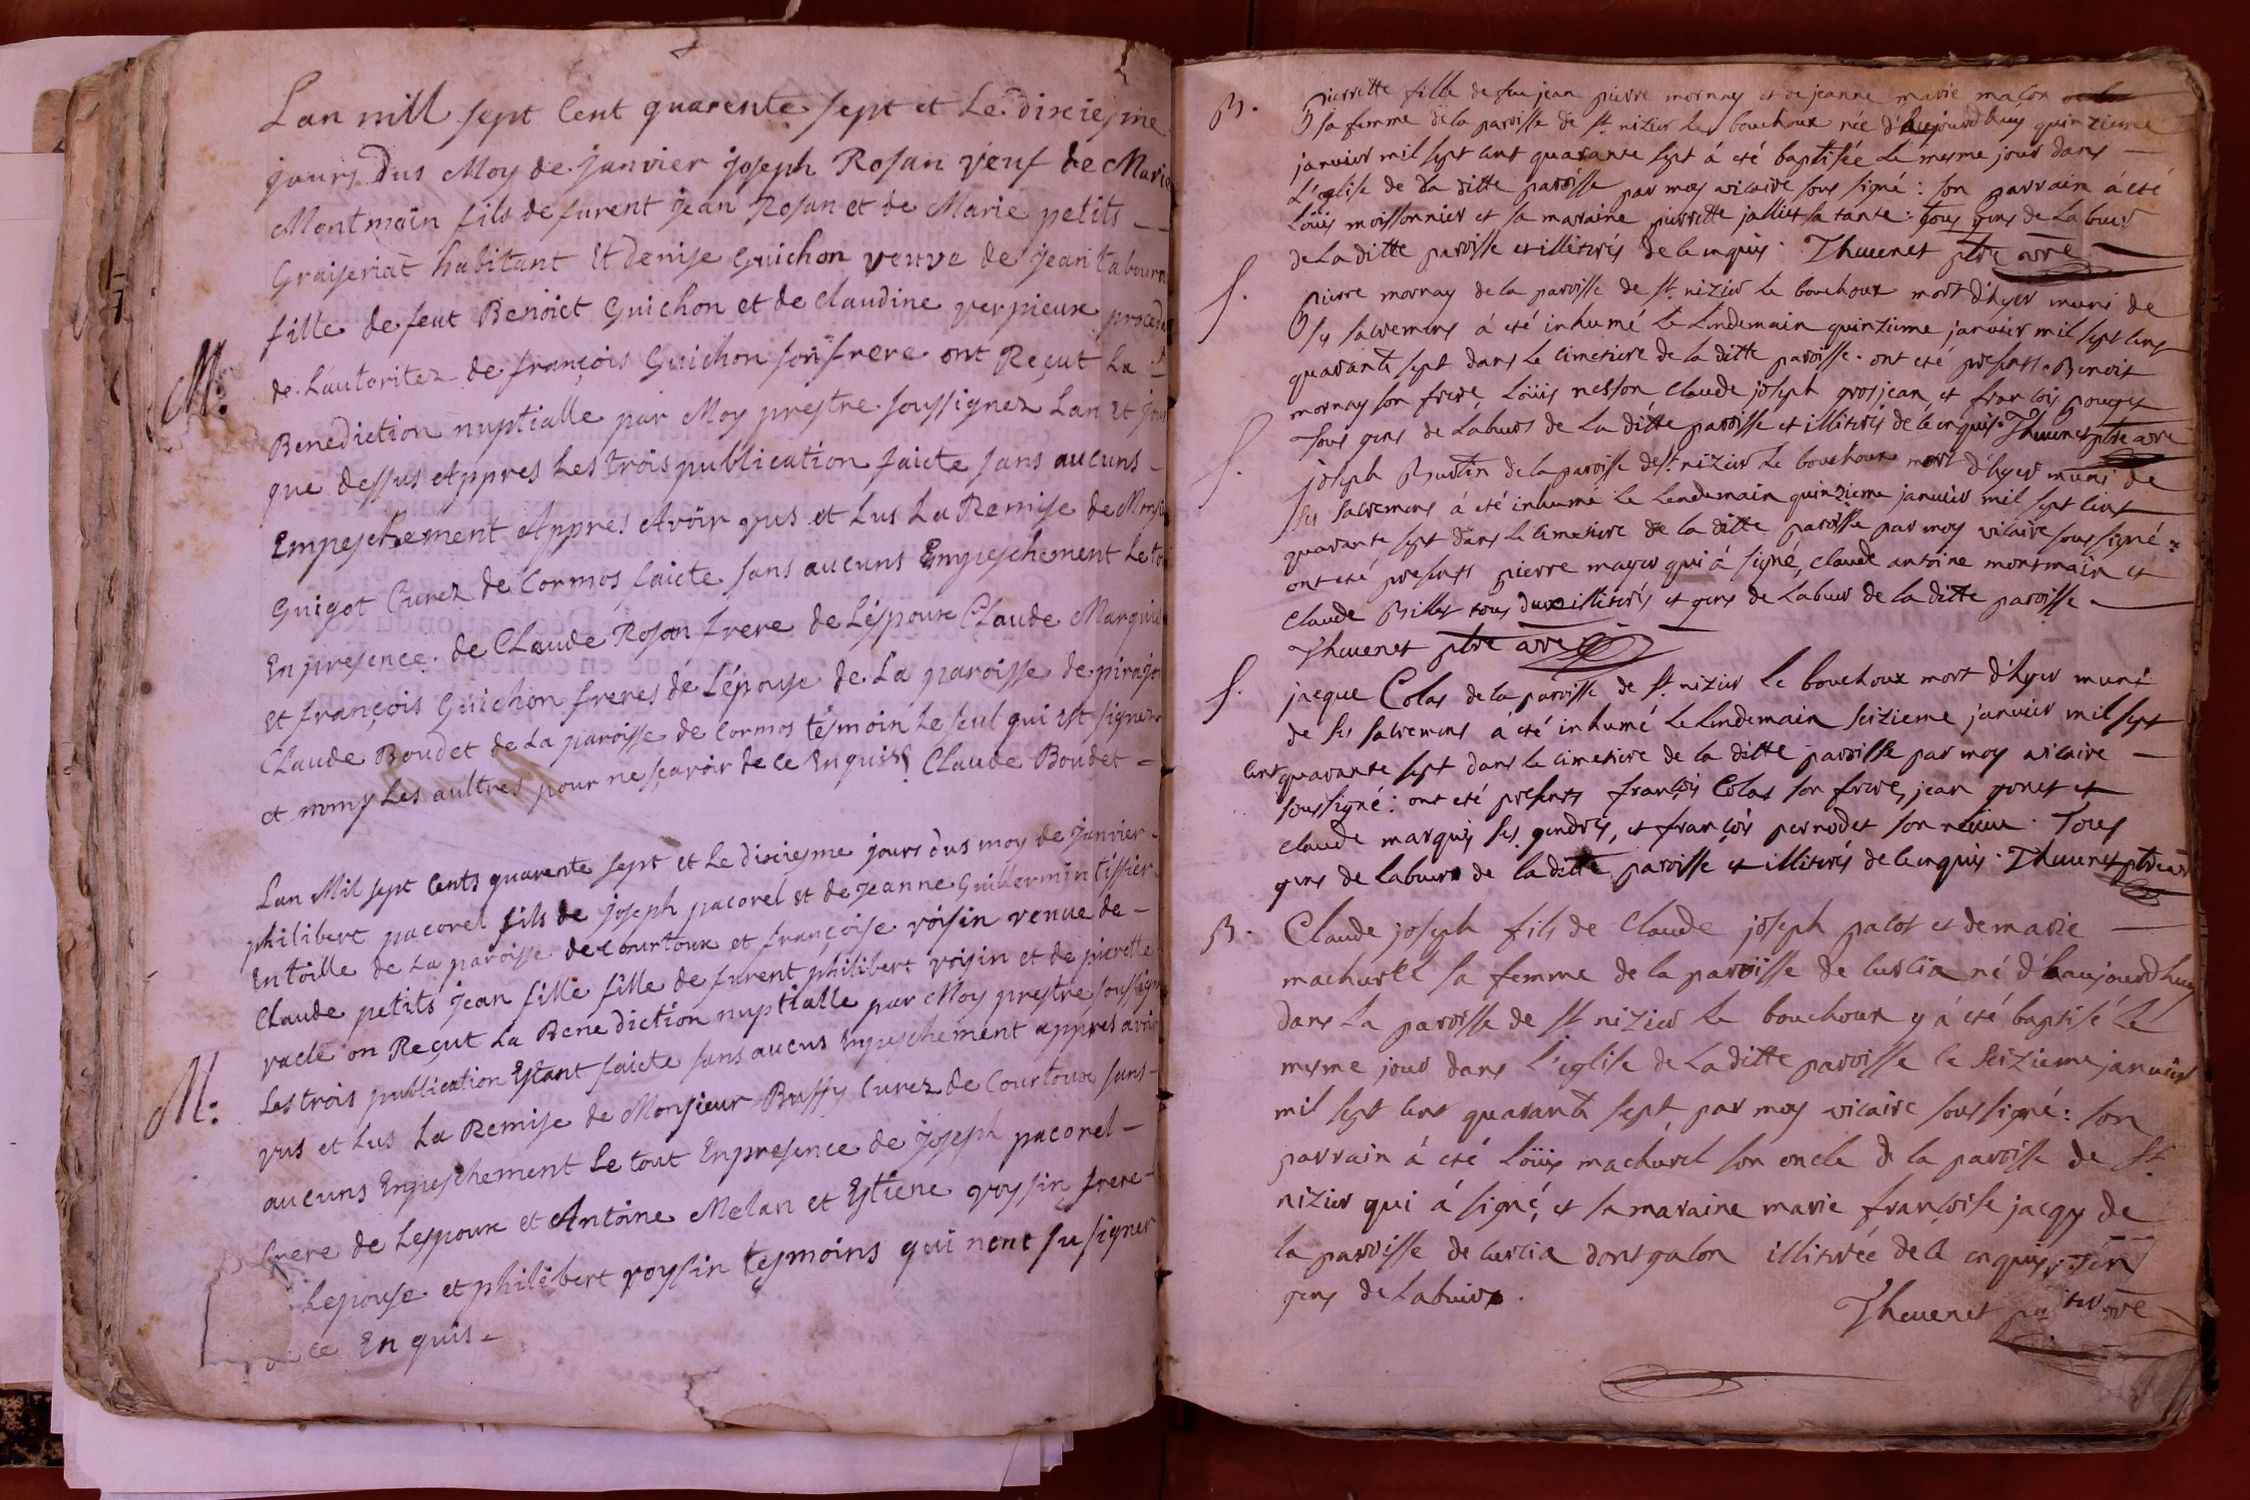 Lan mill sept Cent quarente sept et Le dixiesme
jours Dus Moy de janvier joseph Rosan veuf de Marie
Montmain fils de furent jean Rosan et de Marie petits
Graiseriat habitant Et Denise Guichon veuve de jean
fille de feut Benoict Guichon et de claudine verpieux
de Lautoritez de françois Guichon son frere ont Reçut La
M:
Benediction nuptialle par Moy prestre soussignez Lan Et jour
que dessus Appres Les trois publication faicte sans aucuns
Empeschement Appres Avoir vus et Lus La Remise de
Guigot Curez de Cormos faicte sans aucuns Empeschement Le
En presence de Claude Rosan frere de Lespoux Claude
et françois Guichon freres de Lépouse de La paroisse de
Claude Boudet de La paroisse de Cormos tesmoin Le seul qui est signez
et nomy Les aultres pour ne sçavoir de ce Enquist Claude Boudet
Lan Mil sept Cents quarente sept et Le dixiesme jours dus moy de janvier
philibert pacorel fils de joseph pacorel et de jeanne Guillermin tissier
En toille de La paroisse de Courtoux et françoise voisin venue de
Claude petits jean fille fille de furent philibert voisin et de pierrette
vacle on Reçut La Benediction nuptialle par Moy prestre
M:
Les trois publication Estant faicte sans aucus Enpeschement appres avoir
vus et Lus La Remise de Monsieur Buffy Curez de Courtoux sans
aucuns Enpeschement Le tout Enpresence de joseph pacorel
frere de Lespoux et Antoine Melan et Estiene voysin frere
Lepouse et philibert voysin tesmoins qui nont su signer
ce En quis
B.
pierrette fille de feu jean pierre mornay et de jeanne marie maçon
sa femme de la paroisse de st. nizier le bouchoux née d'haujourdhuy quinzieme
janvier mil sept cent quarante sept á eté baptisée le mesme jour dans
L'eglise de la ditte paroisse par moy vicaire sous signé: son parrain á eté
Loüis moissonnier et sa maraine pierrette jallier sa tante: tous gens de Labeur
de La ditte paroisse et illiterés de ce enquis. Thevenet ptre
f.
pierre mornay de la paroisse de st. nizier le bouchoux mort d'hyer muni de
ses sacremens á eté inhumé le lendemain quinzieme janvier mil sept cent
quarante sept dans le cimetiere de la ditte paroisse. ont eté presents Benoit
mornay son frere, Loüis nesson claude joseph grosjean et françois pouget
Tous gens de Labeur de La ditte paroisse et illiterés de ce enquis. Thevenet ptre
f.
joseph Burtin de la paroisse de st. nizier le bouchoux mort d'hyer muni de
ses sacremens á eté inhumé le lendemain quinzieme janvier mil sept cent
quarante sept dans le cimetiere de la ditte paroisse par moy vicaire sous signé:
ont eté presents pierre mayer qui á signé, claude antoine montmain et
claude Billet tous deux illiterés et gens de Labeur de la ditte paroisse.
Thevenet ptre
f.
jacque Colas de la paroisse de st. nizier le bouchoux mort d'hyer muni
de ses sacremens á eté inhumé le lendemain seizieme janvier mil sept
cent quarante sept dans le cimetiere de la ditte paroisse par moy vicaire
sous signé: ont eté presents françois Colas son frere, jean ponet et
claude marquis ses gendres, et françois pernodet son neveu. Tous
gens de labeur de la ditte paroisse et illiterés de ce enquis. Thevenet ptre
B.
Claude joseph fils de Claude joseph palot et de marie
machurel sa femme de la paroisse de curcia né d'haujourdhuy
dans la paroisse de st nizier le bouchoux y á eté baptisé le
mesme jour dans l'eglise de La ditte paroisse le seizieme janvier
mil sept cent quarante sept, par moy vicaire sous signé: son
parrain á eté Loüis machurel son oncle de la paroisse de st
nizier qui á signé, et sa maraine marie françoise jacqy de
la paroisse de curcia dongalon illiterée de ce enquis,
gens de Labeur.
Thevenet